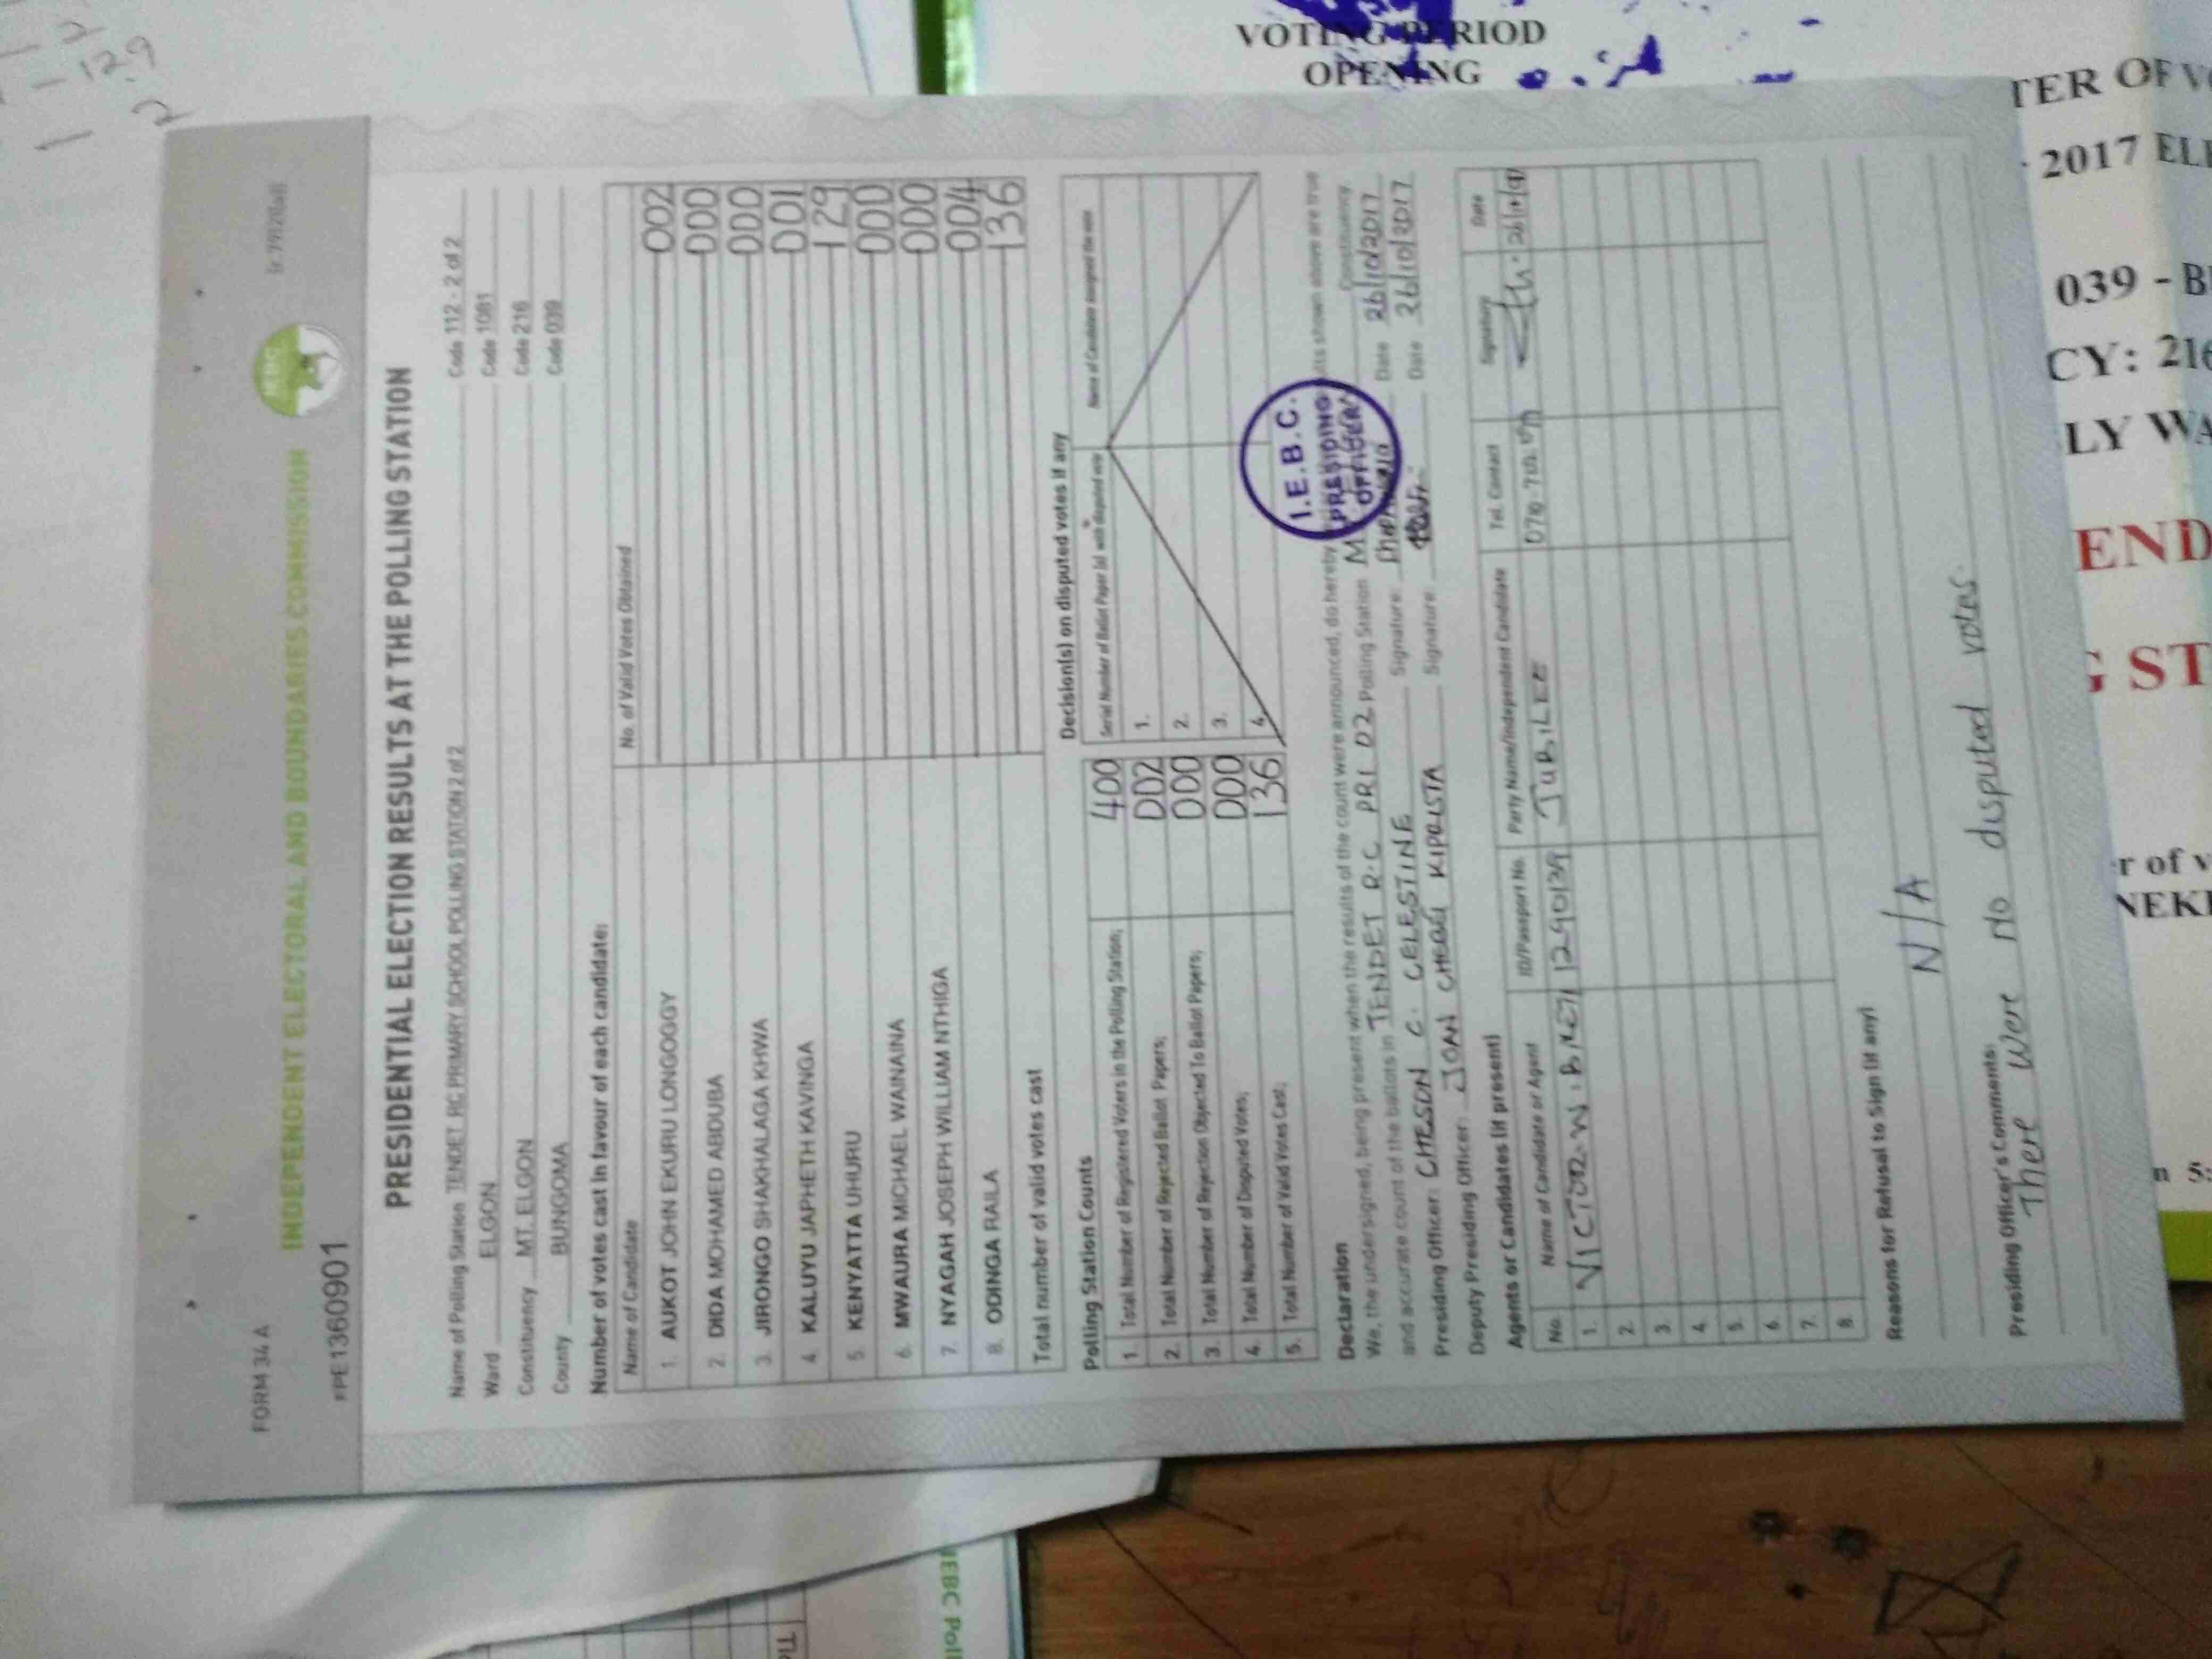 FORM 34 A
INDEPENDENT ELECTORAL AND BOUNDARIES COMMISSION
IEBC
PE1360901
PRESIDENTIAL ELECTION RESULTS AT THE POLLING STATION
Name of Polling Station TENDET RC PRIMARY SCHOOL POLLING STATION 2 of 2 Code 112 - 2 of 2
Ward ELGON Code 1081
Constituency MT. ELGON Code 216
County BUNGOMA Code 039
Number of votes cast in favour of each candidate:
Name of Candidate No. of Valid Votes Obtained
1. AUKOT JOHN EKURU LONGOGGY 002
2. DIDA MOHAMED ABDUBA 000
3. JIRONGO SHAKHALAGA KHWA 000
4. KALUYU JAPHETH KAVINGA 001
5. KENYATTA UHURU 129
6. MWAURA MICHAEL WAINAINA 000
7. NYAGAH JOSEPH WILLIAM NTHIGA 000
8. ODINGA RAILA 004
Total number of valid votes cast 136
Polling Station Counts
1. Total Number of Registered Voters in the Polling Station; 400
2. Total Number of Rejected Ballot Papers; 002
3. Total Number of Rejection Objected To Ballot Papers; 000
4. Total Number of Disputed Votes; 000
5. Total Number of Valid Votes Cast; 136
Decision(s) on disputed votes if any
Serial Number of Ballot Paper (s) with disputed vote Name of Candidate assigned the vote
1.
2.
3.
4.
I.E.B.C.
PRESIDING
OFFICER
Declaration
We, the undersigned, being present when the results of the count were announced, do hereby shown above are true
and accurate count of the ballots in TENDET R.C PRI 02 Polling Station Constituency
Presiding Officer: CHESON C. CELESTINE Signature: Date 26/10/2017
Deputy Presiding Officer: JOAN Signature: Date 26/10/2017
Agents or Candidates (if present)
No. Name of Candidate or Agent ID/Passport No. Party Name/Independent Candidate Tel. Contact Signature Date
1. VICTOR JUBILEE
2.
3.
4.
5.
6.
7.
8.
Reasons for Refusal to Sign (if any)
N/A
Presiding Officer's Comments:
There were no disputed votes.
VOTING PERIOD
OPENING
2017
039 - B
CY: 216
LY WA
END
ST
r of v
129
IEBC